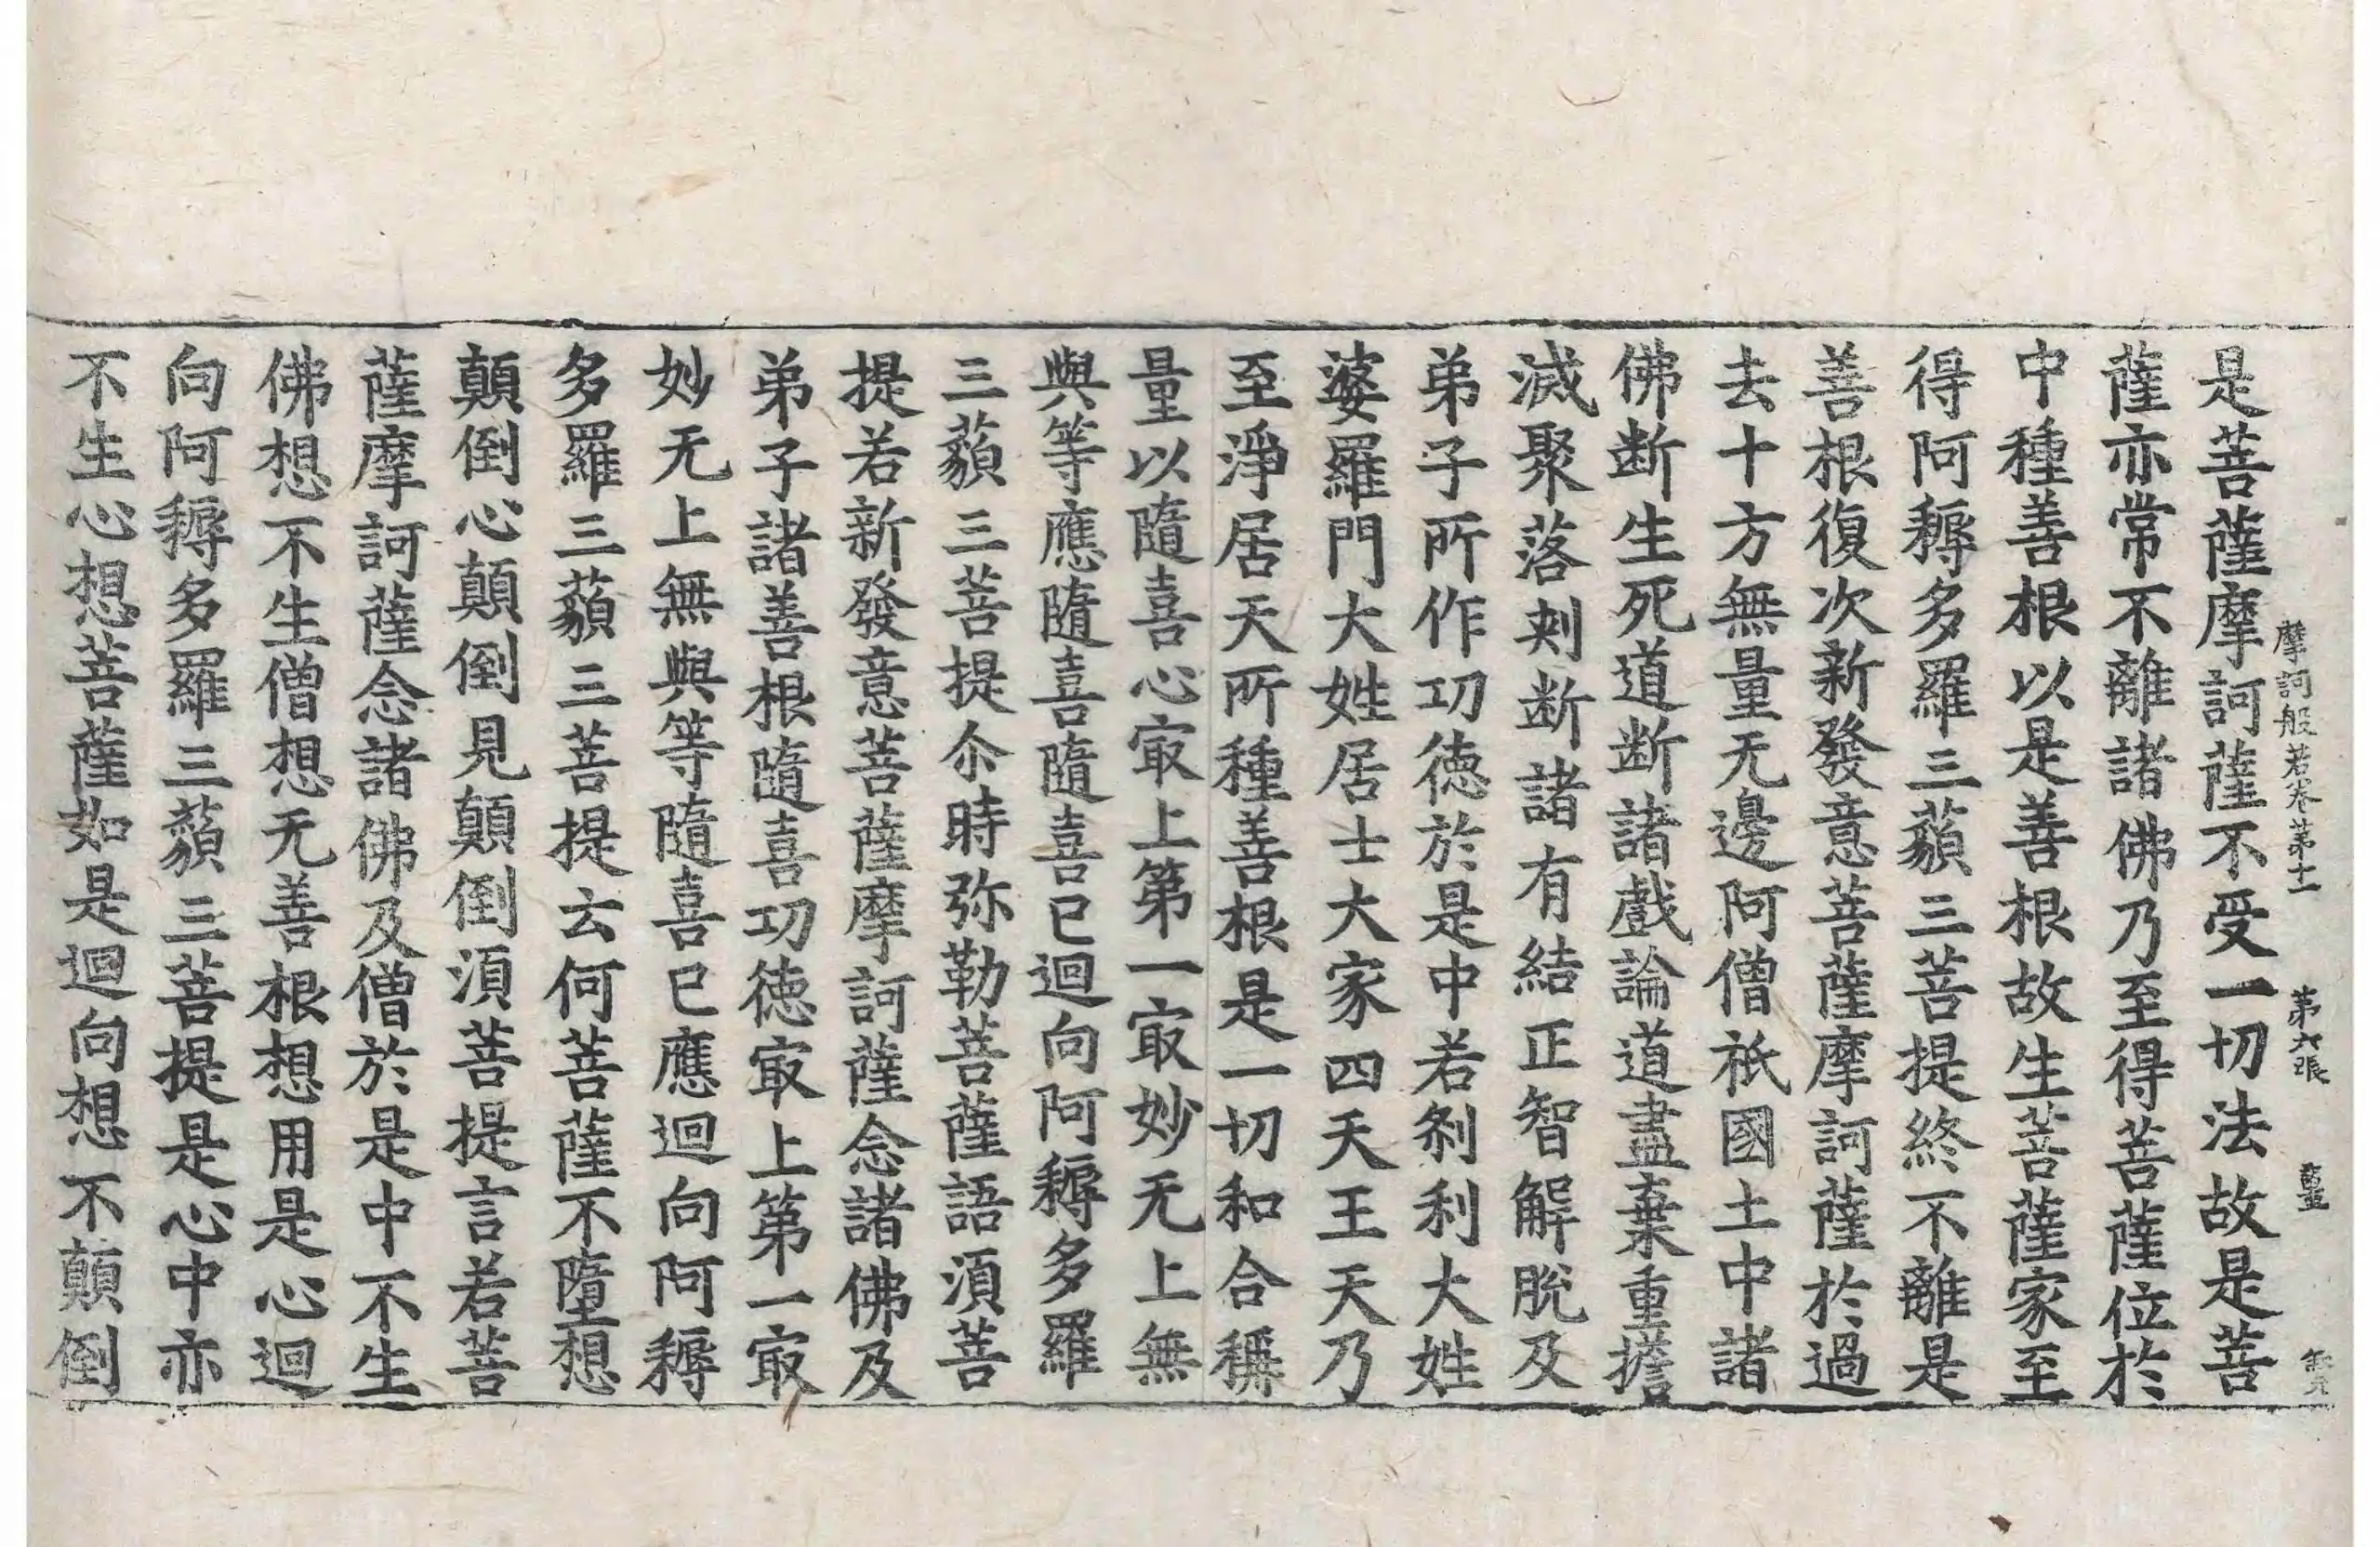 摩訶般若卷第十一 第六張
是菩薩摩訶薩不受一切法故是菩
薩亦常不離諸佛乃至得菩薩位於
中種善根以是善根故生菩薩家至
得阿耨多羅三藐三菩提終不離是
善根復次新發意菩薩摩訶薩於過
去十方無量无邊阿僧祇國土中諸
佛断生死道断諸戲論道盡棄重擔
滅聚落刾断諸有結正智解脫及
弟子所作功徳於是中若刹利大姓
婆羅門大姓居士大家四天王天乃
至淨居天所種善根是一切和合稱
量以隨喜心㝡上第一㝡妙无上無
與等應隨喜隨喜已迴向阿耨多羅
三藐三菩提尒時弥勒菩薩語湏菩
提若新發意菩薩摩訶薩念諸佛及
弟子諸善根隨喜功徳㝡上第一㝡
妙无上無與等隨喜已應迴向阿耨
多羅三藐三菩提云何菩薩不墮想
顛倒心顛倒見顛倒湏菩提言若菩
薩摩訶薩念諸佛及僧於是中不生
佛想不生僧想无善根想用是心迴
向阿耨多羅三藐三菩提是心中亦
不生心想菩薩如是迴向想不顛倒